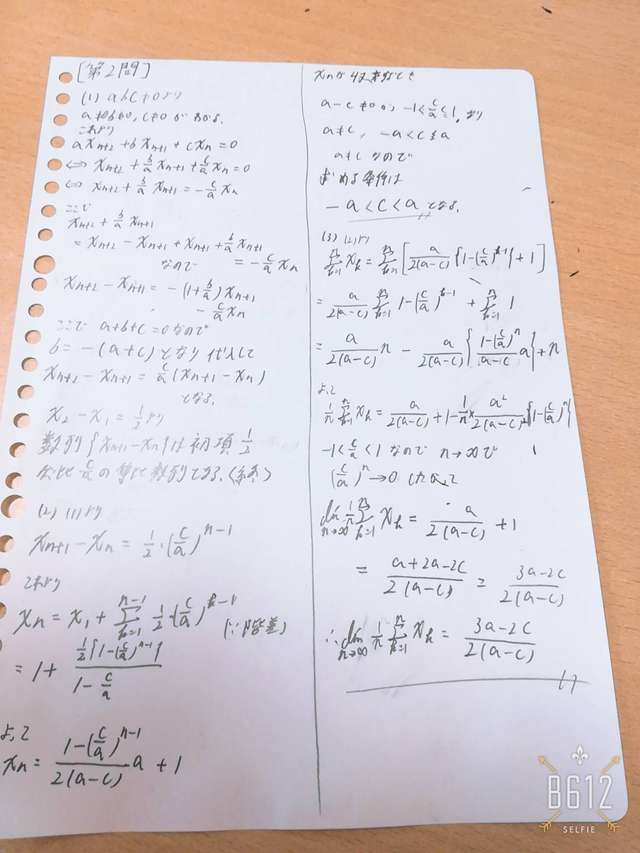 [第2問]
(1) abc≠0より
a≠0, b≠0, c≠0 がわかる.
これより
ax_{n+2} + bx_{n+1} + cx_n = 0
⇔ x_{n+2} + b/a x_{n+1} + c/a x_n = 0
⇔ x_{n+2} + b/a x_{n+1} = -c/a x_n
ここで
x_{n+2} + b/a x_{n+1}
= x_{n+2} - x_{n+1} + x_{n+1} + b/a x_{n+1}
= -c/a x_n
なので
x_{n+2} - x_{n+1} = -(1+b/a)x_{n+1}
- c/a x_n
ここで a+b+c=0なので
b = -(a+c) となり 代入して
x_{n+2} - x_{n+1} = c/a (x_{n+1} - x_n)
となる.
x_2 - x_1 = 1/2 より
数列{x_{n+1} - x_n}は初項 1/2
公比 c/a の等比数列である.(終)
(2) (1)より
x_{n+1} - x_n = 1/2・(c/a)^{n-1}
これより
x_n = x_1 + Σ_{k=1}^{n-1} 1/2・(c/a)^{k-1}
(∵階差)
= 1 + 1/2{1-(c/a)^{n-1}} / (1 - c/a)
よって
x_n = (1-(c/a)^{n-1}) / 2(a-c) a + 1
x_nが収束するとき
a-c≠0かつ -1<c/a≦1, より
a≠c, -a<c≦a
a≠c なので
求める条件は
-a<c<a となる.
(3) (2)より
Σ_{k=1}^{n} x_k = Σ_{k=1}^{n} [a/2(a-c) {1-(c/a)^{k-1}} + 1]
= a/2(a-c) Σ_{k=1}^{n} 1-(c/a)^{k-1} + Σ_{k=1}^{n} 1
= a/2(a-c) n - a/2(a-c) {(1-(c/a)^n)/(a-c) a} + n
よって
1/n Σ_{k=1}^{n} x_k = a/2(a-c) + 1 - 1/n × a²/2(a-c)² {1-(c/a)^n}
-1<c/a<1 なので n→∞で
(c/a)^n→0 したがって
lim_{n→∞} 1/n Σ_{k=1}^{n} x_k = a/2(a-c) + 1
= (a+2a-2c)/2(a-c) = (3a-2c)/2(a-c)
∴ lim_{n→∞} 1/n Σ_{k=1}^{n} x_k = (3a-2c)/2(a-c)
B612
SELFIE